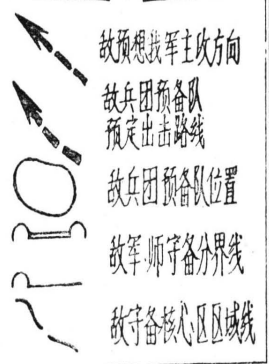 敌预想我军主攻方向
敌兵团预备队
预定出击路线
敌兵团预备队位置
敌军、师守备分界线
敌守备核心区区域线